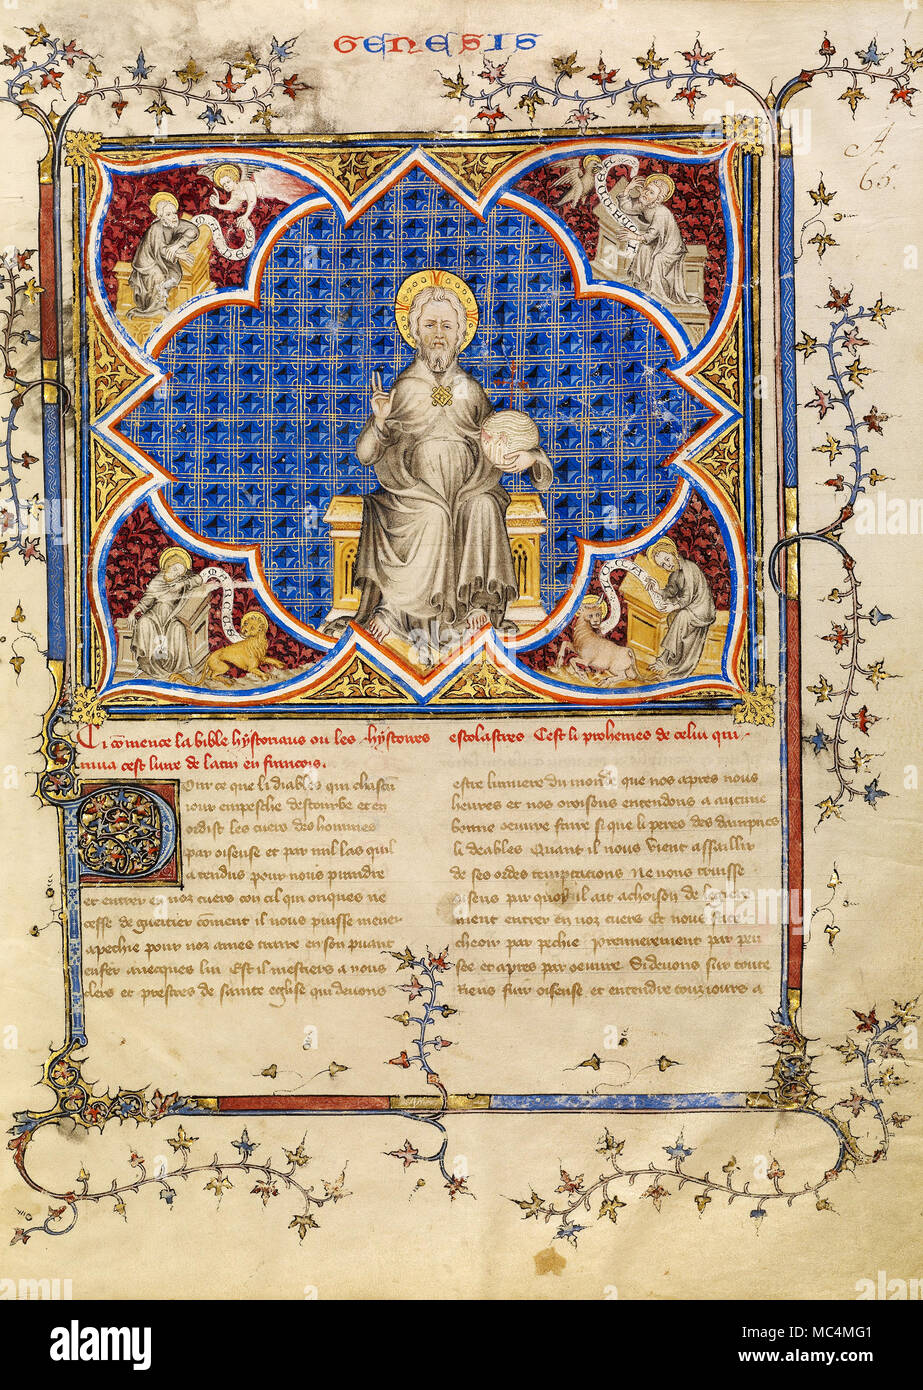 GENESIS
A
65.
Ci cōmence la bible hystoriaus ou les hystoires escolastres Cest li prohemes de celui qui
mist cest liure de latin en francois.
Pour ce que li diables qui chascun
iour empesche destourbe et en
ordist les cuers des hommes
par oiseuse et par mil las quil
a tendus pour nous prendre
et entrer en noz cuers con cil qui onques ne
cesse de gueitier cōment il nous puisse mener
a pechie pour noz ames traire en son puant
enfer auecques lui Est il mestiers a nous
clers et prestres de sainte eglise qui deuons
estre lumiere du monde que nos apres nous
heures et nos oroisons entendons a aucune
bonne oeuure faire si que li peres des dampnes
li deables Quant il nous vient assaillir
de ses ordes temptacions Ne nous truisse
oiseus par quoy il ait achoison de legiere
ment entrer en noz cuers Et nous face
cheoir par pechie premierement par pen
see et apres par oeuure. Si deuons sur toute
riens fuir oiseuse. et entendre touz iours a
alamy
MC4MG1
www.alamy.com